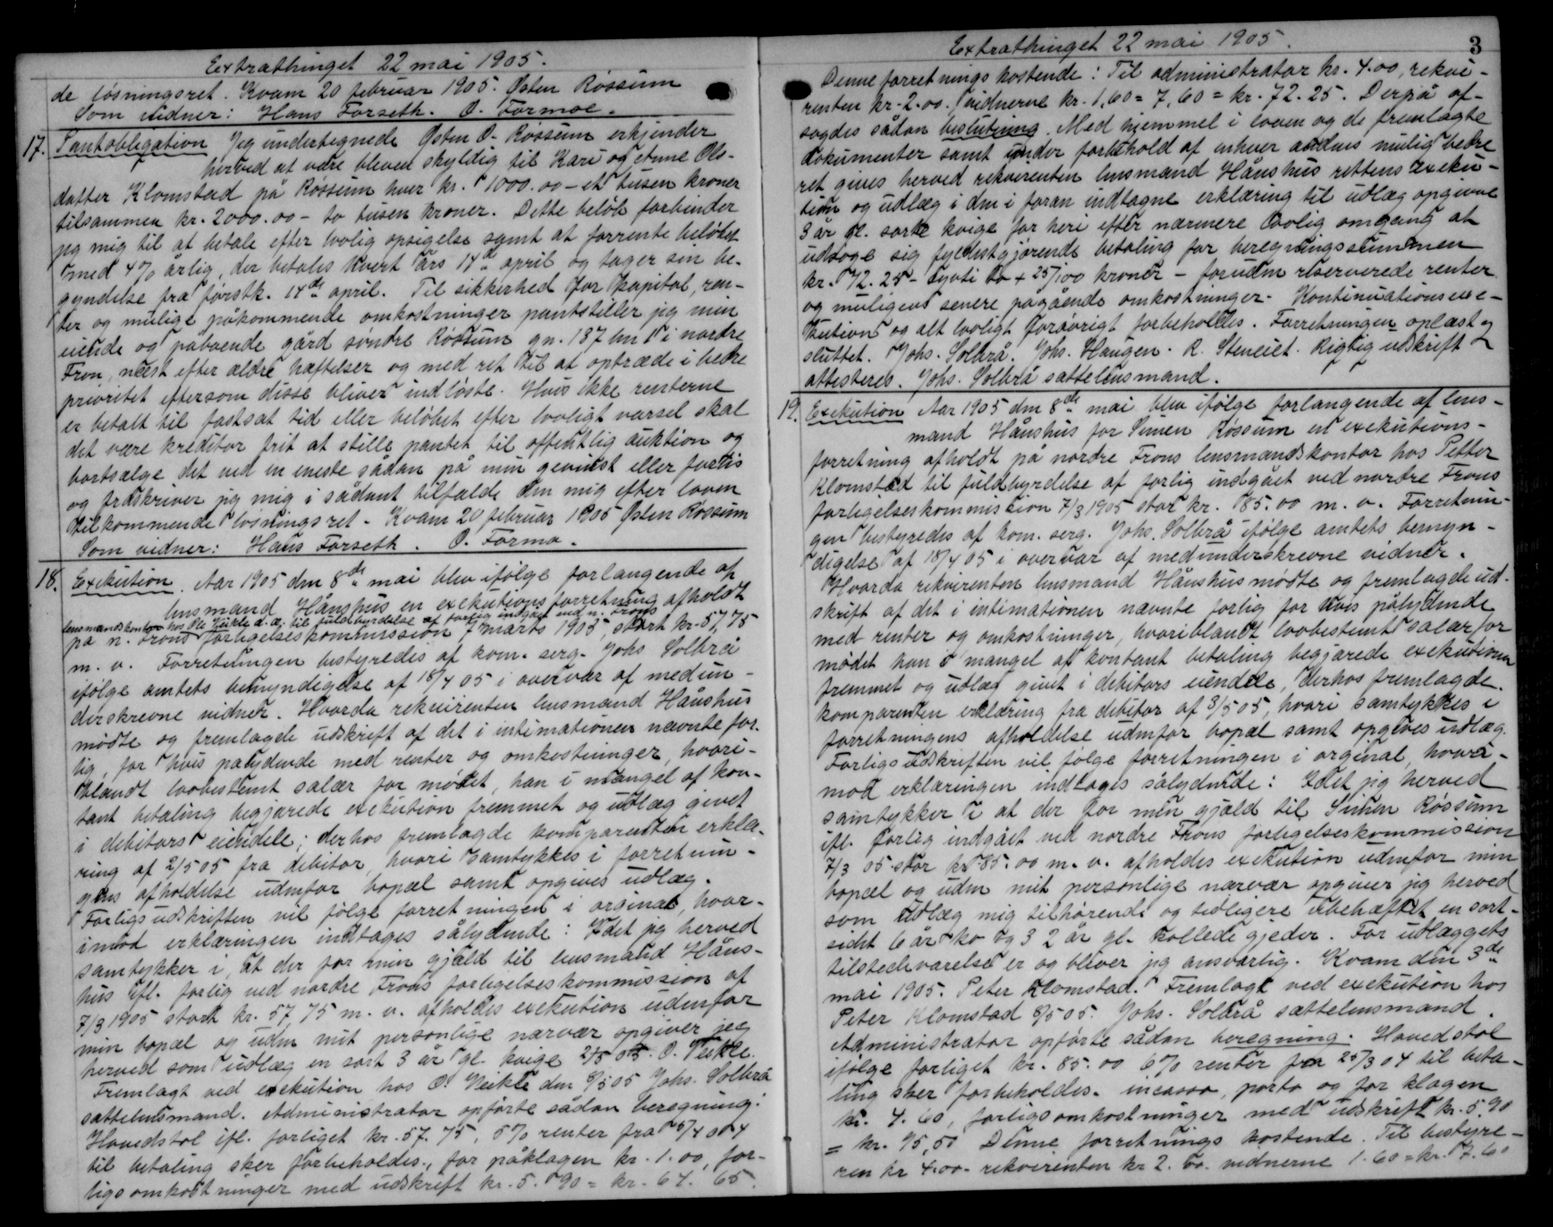 Extrathinget 22 mai 1905.
de løsningsret. Kvam 20 februar 1905. Østen Røssum
Som vidner: Hans Forseth. O. Formoe.
17. Pantobligation Jeg undertegnede Østen O. Røssum erkjender
herved at være bleven skyldig til Kari og Anne Ols-
datter Klomstad på Røssum hver kr. 1000.00 - et tusen kroner
tilsammen kr. 2000.00 - to tusen kroner. Dette beløb forbinder
jeg mig til at betale efter lovlig opsigelse samt at forrente beløbet
med 4% årlig, der betales hvert års 14de april og tager sin be-
gyndelse fra førstk. 14de april. Til sikkerhed for kapital, ren-
ter og mulige påkommende omkostninger pantstiller jeg min
eiende og påboende gård søndre Røssum gn. 187 bn 1 i nordre
Fron, næst efter ældre hæftelser og med ret til at optræde i bedre
prioritet eftersom disse bliver indløste. Hvis ikke renterne
er betalt til fastsat tid eller beløbet efter lovligt varsel skal
det være kreditor frit at stille pantet til offentlig auktion og
bortsælge det ved en eneste sådan på min gevinst eller forlis
og fraskriver jeg mig i sådant tilfælde den mig efter loven
tilkommende løsningsret. Kvam 20 februar 1905 Østen Røssum
Som vidner: Hans Forseth. O. Formo.
18. Exekution. Aar 1905 den 8de mai blev ifølge forlangende af
lensmand Hånshus en exekutionsforretning afholdt
lensmandskontor hos Ole Veikle d.æ. til fuldbyrdelse af forlig indgået ved n. Frons
på n. Frons forligelseskommission 7 marts 1905, stort kr. 57,75
m. v. Forretningen bestyredes af kom. serg. Johs Solbrå
ifølge amtets bemyndigelse af 18/4 05 i overvær af medun-
derskrevne vidner. Hvorda rekvirenten lensmand Hånshus
mødte og fremlagde udskrift af det i intimationen nævnte for-
lig, for hvis pålydende med renter og omkostninger, hvori-
blandt lovbestemt salær for mødet, han i mangel af kon-
tant betaling begjærede exekution fremmet og udlæg givet
i debitors eiendele; derhos fremlagde komparenten erklæ-
ring af 2/5 05 fra debitor, hvori samtykkes i forretnin-
gens afholdelse udenfor bopæl samt opgives udlæg.
Forligsudskriften vil følge forretningen i orginal, hvor-
imod erklæringen indtages sålydende: Idet jeg herved
samtykker i, at der for min gjæld til lensmand Håns-
hus ifl. forlig ved nordre Frons forligelseskommission af
7/3 1905 stort kr. 57,75 m. v. afholdes exekution udenfor
min bopæl og uden mit personlige nærvær opgiver jeg
herved som udlæg en sort 3 år gl. kvige 2/5 05. O. Veikle.
Fremlagt ved exekution hos O. Veikle den 8/5 05 Johs. Solbrå
sættelensmand. Administrator opførte sådan beregning:
Hovedstol ifl. forliget kr. 57.75, 5% renter fra 5/4 04
til betaling sker forbeholdes, for påklagen kr. 1.00, for-
ligsomkostninger med udskrift kr. 5.90 = kr. 64.65.
Extrathinget 22 mai 1905.
3
Denne forretnings kostende: Til administrator kr. 4.00, rekvi-
renten kr. 2.00. vidnerne kr. 1,60 = 7,60 = kr. 72.25. Derpå af-
sagdes sådan beslutning. Med hjemmel i loven og de fremlagte
dokumenter samt under forbehold af enhver andens mulig bedre
ret gives herved rekvirenten lensmand Hånshus rettens exeku-
tion og udlæg i den i foran indtagne erklæring til udlæg opgivne
3 år gl. sorte kvige for heri efter nærmere lovlig omgang at
udsøge sig fyldestgjørende betaling for beregningssummen
kr. 72.25 - sytti to + 25/100 kroner - foruden reserverede renter
og muligens senere pågående omkostninger. Kontinuationsexe-
kution og alt lovligt forøvrigt forbeholdes. Forretningen oplæst og
sluttet. Johs. Solbrå. Johs. Haugen. R. Steneiet. Rigtig udskrift
attesteres. Johs. Solbrå sættelensmand.
19. Exekution Aar 1905 den 8de mai blev ifølge forlangende af lens-
mand Hånshus for Simen Røssum en exekutions-
forretning afholdt på nordre Frons lensmandskontor hos Petter
Klomstad til fuldbyrdelse af forlig indgået ved nordre Frons
forligelseskommission 7/3 1905 stor kr. 85.00 m. v. Forretnin-
gen bestyredes af kom. serg. Johs. Solbrå ifølge amtets bemyn-
digelse af 18/4 05 i overvær af medunderskrevne vidner.
Hvorda rekvirenten lensmand Hånshus mødte og fremlagde ud-
skrift af det i intimationen nævnte forlig for hvis pålydende
med renter og omkostninger, hvoriblandt lovbestemt salær for
mødet han i mangel af kontant betaling begjærede exekutionen
fremmet og udlæg givet i debitors eiendele, derhos fremlagde
komparenten erklæring fra debitor af 3/5 05, hvori samtykkes i
forretningens afholdelse udenfor bopæl samt opgives udlæg.
Forligsudskriften vil følge forretningen i orginal, hvori-
mod erklæringen indtages sålydende: Idet jeg herved
samtykker i at der for min gjæld til Simen Røssum
ifl. forlig indgået ved nordre Frons forligelseskommission
7/3 05 stor kr 85.00 m. v. afholdes exekution udenfor min
bopæl og uden mit personlige nærvær opgiver jeg herved
som udlæg mig tilhørende og tidligere ubehæftet en sort-
sidet 6 år ko og 3 2 år gl. kollede gjeder. For udlæggets
tilstedeværelse er og bliver jeg ansvarlig. Kvam den 3de
mai 1905. Peter Klomstad. Fremlagt ved exekution hos
Peter Klomstad 8/5 05. Johs. Solbrå sættelensmand.
Administrator opførte sådan beregning: Hovedstol
ifølge forliget kr. 85.00 6% renter fra 25/3 04 til beta-
ling sker forbeholdes. incasso, porto og for klagen
kr. 4.60, forligsomkostninger med udskrift kr. 5.90
= kr. 95,50 Denne forretnings kostende. Til bestyre-
ren kr 4.00. rekvirenten kr 2.00. vidnerne 1.60 = kr. 7.60